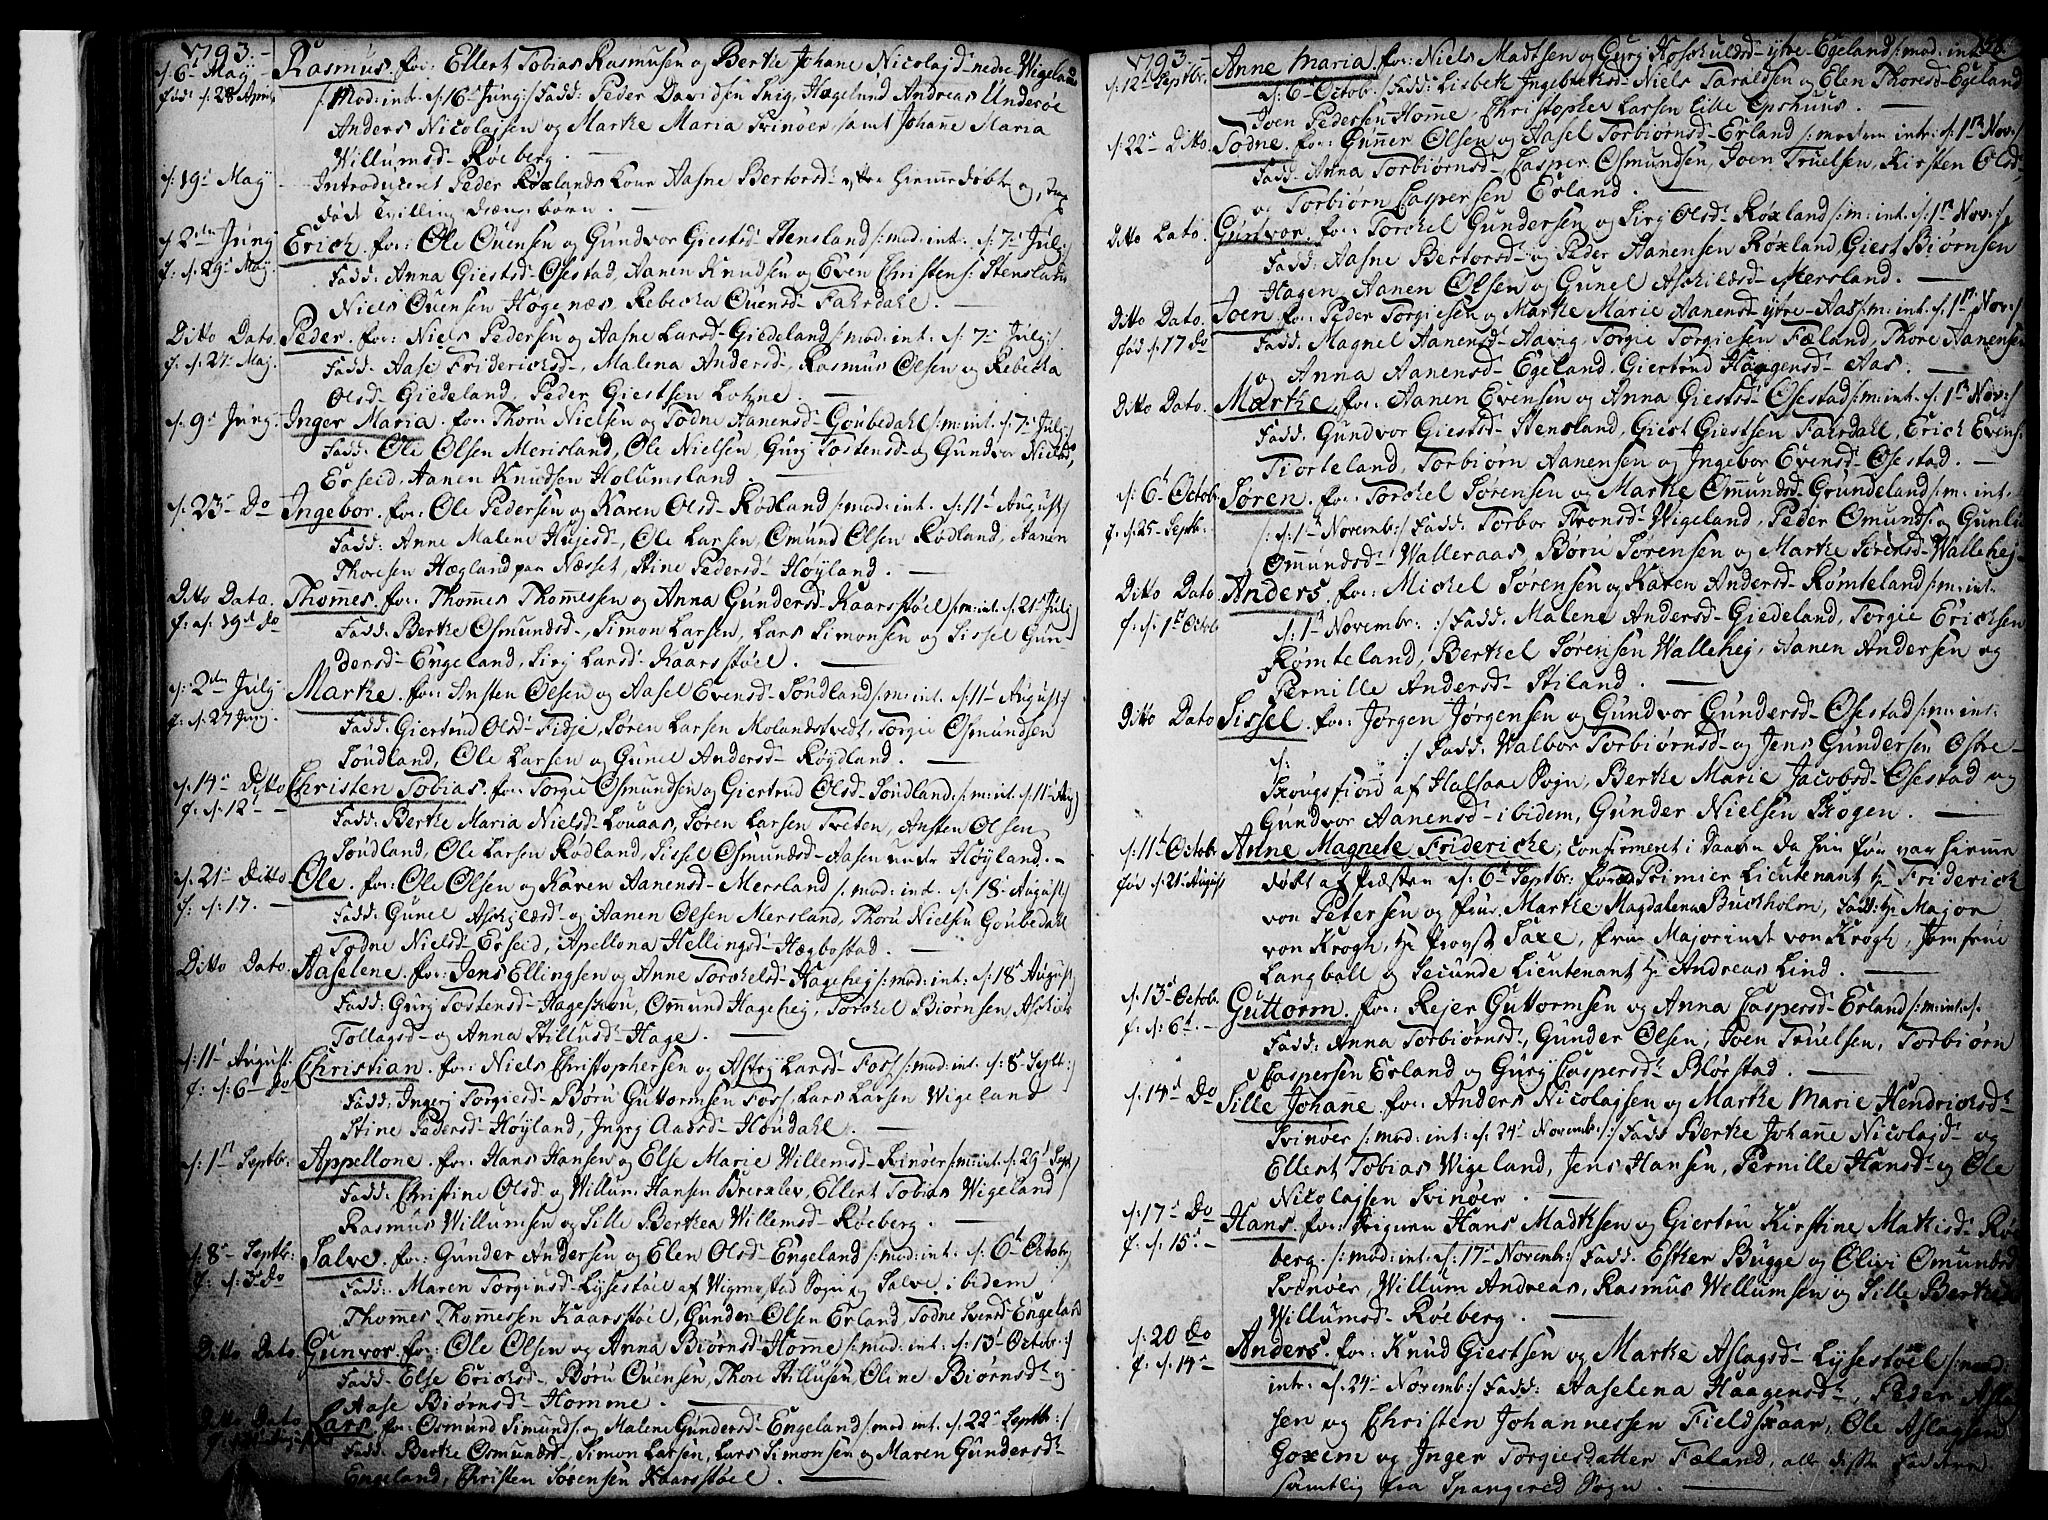 1793.
d: 6te Maij. Rasmus. for: Ellert Tobias Rasmusen og Berte Johane Nicolajd- nedre Wigeland
fød d: 28 April /: Mod: int. d: 16 Junij :/ Fadd: Peder Davidsen Andreas Underøe
Anders Nicolaysen og Marthe Maria Svinøer, samt Johanne Maria
Willumsd- Røeberg.
d: 19d Maij Introduceret Peder Røxlands Kone Aasne Bertorsd-
død Tvilling drenge børn.
d: 2den Junij Erich. for: Ole Ouensen og Gundvor Giestsd- Stensland /: mod: int: d: 7d Julij :/
f: d: 29d Maij. Fadd: Anna Giestsd- Øsestad, Aanen Knudsen og Even Christens: Stensland
Niels Ouensen Høgenæs, Rebecha Ouensd- Fahrdahl.
Ditto Dato. Peder. for: Niels Pedersen og Aasne Larsd- Giedeland /: mod: int. d: 7d Julij :/
f: d: 27 Maj. Fadd: Aase Friderichsd-, Malena Andersd-, Rasmus Olsen og Rebecha
Olsd- Giedeland, Peder Giestsen Lohne.
d: 9d Junij. Inger Maria. for: Thoru Nielsen og Todne Aanensd- Goubedahl /: m: int. d: 7d Julij :/
Fadd: Ole Olsen Merisland, Ole Nielsen, Gurj Tostensd- og Gundvor Nielsd,
Erseid, Aanen Knudsen Holumsland.
d: 23d Do Ingebor. for: Ole Pedersen og Karen Olsd- Rødland /: mod: int. d: 11t August :/
Fadd: Anne Malene Ole Larsen, Omund Olsen Rødland, Aanen
Thoresen Hægland paa Næsset, Stine Pedersd- Høyland.
Ditto Dato. Thomes. for: Thomes Thomessen og Anna Gundersd- Kaarstøel /: m: int. d: 21d Julij
f: d: 19d do Fadd: Berthe Osmundsd-, Simon Larsen, Lars Simonsen og Sissel Gun-
dersd- Engeland, Sirj Larsd- Kaarsstøel.
d: 2den Julij Marthe. for: Ansten Olsen og Aasel Evensd- Loudland /: m: int. d: 11t August :/
f: d: 27 Junij. Fadd: Giertrud Olsd- Fidje, Søren Larsen Molandstvedt, Torgie Osmundsen
Loudland, Ole Larsen og Gunel Andersd- Røydland.
d: 14d Ditto Christen Tobias. for: Torgie Osmundsen og Giertrud Olsd- Loudland /: m: int. d: 11t Aug :/
f: d: 12t Fadd: Berthe Maria Nielsd- Louaas, Søren Larsen Tveten, Ansten Olsen
Loudland, Ole Larsen Rødland, Sissel Osmundsd- Aasen under Høyland.
d: 21d Ditto Ole. for: Ole Olsen og Karen Aanensd- Mersland /: mod: int. d: 18d August :/
f: d: 17. Fadd: Gunel Aschilæsd- og Aanen Olsen Mersland, Thoru Nielsen Goubedahl
Todne Nielsd- Erseid, Apellona Hellingsd- Hægbostad.
Ditto Dato. Aaselene. for: Jens Ellingsen og Anne Torchelsd- Hagehej /: mod: int: d: 18d August :/
Fadd: Gurj Tostensd- Hageskou, Ommund Hagehej, Torchel Biørnsen,
Tollagsd- og Anna Stillusd- Hage.
d: 11t August. Christian. for: Niels Christophersen og Astrj Larsd- Foss /: mod: int. d: 8d Septb :/
f: d: 6te Do Fadd: Ingerj Torgiersd- Børu Guttormsen Foss, Lars Larsen Wigeland
Stine Pedersd- Høyland, Ingrj Aarsd- Houdahl.
d: 1st Septbr: Appellone. for: Hans Hansen og Else Marie Willemsd- Svinøer /: m: int. d: 29d Sept :/
Fadd: Christine Olsd- og Willum Hansen Brexlev, Ellert Tobias Wigeland
Rasmus Willumsen og Sille Berthea Willemsd- Røeberg.
d: 8d Septbr: Salve. for: Gunder Andersen og Elen Olsd- Engeland /: mod: int: d: 6t Octobr :/
f: d: 3 do Fadd: Maren Torgiusd- Lysestøel af Wigmostad Sogn og Salve ibidem
Thomes Thomessen Kaarsstøel, Gunder Olsen Erland, Todne Svensd- Engeland
Ditto Dato. Gunvor. for: Ole Olsen og Anna Biørnsd- Homme /: mod: int: d: 13t Octobr :/
Fadd: Else Erichsd-, Børu Ouensen, Thore Stillusen, Oline Biørnsd- og
Aase Biørnsd- Homme.
Ditto Dato Lars for: Osmund Simunds: og Malene Gundersd- Engeland /: mod int. d: 22d Septbr :/
Fadd: Berthe Osmundsd-, Simon Larsen, Lars Simonsen og Maren Gundersd-
Engeland, Christen Sørensen Kaarsstøel.
1793.
d: 12te Septbr: Anne Maria. for: Niels Madtsen og Gurj Aschuldsd- ytre Egeland /: mod: int:
d: 6te Octobr :/ Fadd: Lisbeth Ingebretsd- Niels Taraldsen og Elen Thoresd- Egeland
Joen Pedersen Homme, Christopher Larsen lille Epshuus.
d: 22d Ditto. Todne. for: Gunner Olsen og Aasel Torbiørnsd- Erland /: modern intr: d: 1st Nov :/
Fadd: Anna Torbiørnsd- Casper Osmundsen, Joen Truelsen, Kirsten Olsd-
og Torbiørn Caspersen Erland.
Ditto Dato. Gunvor. for: Torchel Gundersen og Sirj Olsd- Røxland /: m: int. d: 1st Nov :/
Fadd: Aasne Bertorsd- og Peder Aanensen Røxland, Giest Biørnsen
Hagen, Aanen Olsen og Gunel Aschilæsd- Mersland.
Ditto Dato. Joen. for: Peder Torgiesen og Marthe Marie Aanensd- ytre- Aas /: m: int. d: 1st Nov :/
fød d: 17 do Fadd: Magnel Aanensd- Aavig, Torgie Torgiesen Fæland, Thore Aanensen
og Anna Aanensd- Egeland, Giertrud Haagensd- Aas.
Ditto Dato. Marthe. for: Aanen Evensen og Anna Giestsd- Øsestad /: m: int. d: 1st Nov :/
Fadd: Gundvor Giestsd- Stensland, Giest Giestsen Fahrdall, Erich Evens:
Tiorteland, Torbiørn Aanensen og Ingebor Evensd- Øsestad.
d: 6t Octobr Søren. for: Torchel Sørensen og Marthe Ommundsd- Grundeland /: m: int.
f: d: 25 Septb: /: d: 1st Novemb :/ Fadd: Torbor Tronsd- Wigeland, Peder Omunds: og Gunlu
Ommundsd- Walleraas, Børu Sørensen og Marthe Sørensd- Wallehej.
Ditto Dato Anders. for: Michel Sørensen og Karen Andersd- Romteland /: m: int.
f: d: 1st Octob d: 1st Novembr: :/ Fadd: Malene Andersd- Giedeland, Torgie Erichsen
Romteland, Berthel Sørensen Wallehej, Aanen Andersen og
Pernille Andersd- Stiland.
Ditto Dato Sissel. for: Jørgen Jørgensen og Gundvor Gundersd- Øsestad /: m: int.
d: :/ Fadd: Walbor Torbiørnsd- og Jens Gundersen Østre-
Skougsfiord af Halsaae Sogn, Berthe Marie Jacobsd- Øsestad og
Gundvor Aanensd- ibidem, Gunder Nielsen Skogen.
d: 11t Octobr Anne Magnete Frideriche, confirmeret i Daaben da hun før var hiemme
fød d: 21 August døbt af Præsten d: 6te Septbr: for: Primier Lieutenant Hr Friderich
von Petersen og frue Marthe Magdalena Buckholm, Fadd: Hr Major
von Krogh, Hr Provst Saxe, frue Majorinde von Krogh, Jomfrue
Langball og Secunde Lieutenant Hr Andreas Lind.
d: 13d Octobr. Guttorm. for: Rejer Guttormsen og Anna Caspersd- Erland /: m: int. d.
f: d: 6t. Fadd: Anna Torbiørnsd-, Gunder Olsen, Joen Truelsen, Torbiørn
Caspersen Erland og Gurj Caspersd- Blørstad.
d: 14d Do Sille Johanne for: Anders Nicolaysen og Marthe Marie Hendrichsd-
Svinøer /: mod: int: d: 24d Novemb: :/ Fadd Berthe Johanne Nicolajd- og
Ellert Tobias Wigeland, Jens Hansen, Pernille Hansd- og Ole
Nicolaysen Svinøer.
d: 17d Do Hans. for: Hans Madtsen og Giertru Kirstine Mathisd- Røe-
f: d: 15d berg. /: mod: int. d: 17d Novemb :/ Fadd: Ester Bugge og Olivi Omundsd
Svinøer, Willum Andreas, Rasmus Wellumsen og Sille Berthea
Willumsd- Røeberg.
d: 20 Do Anders. for: Knud Giestsen og Marthe Aslagsd- Lysestøel /: mod:
f: d: 14d intr. d: 24d Novemb :/ Fadd: Aaselena Haagensd-, Peder Asla-
sen og Christen Johannessen Fieldskaar, Ole Aslagsen
Goxem og Inger Torgiesdatter Fæland, alle disse Faddere
samtlig fra Spangereid Sogn.